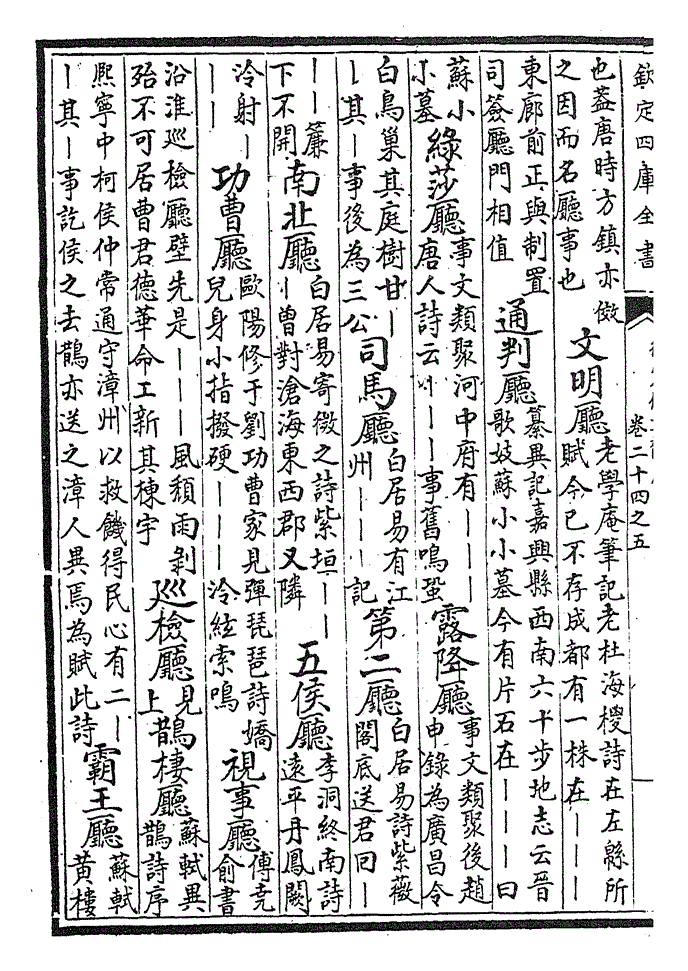 欽定四庫全書
卷二十四之五
也蓋唐時方鎮亦倣
之因而名廳事也
文明廳
老學庵筆記老杜海椶詩在左緜所
賦今已不存成都有一株在丨丨丨
東廊前正與制置
司簽廳門相值
通判廳
纂異記嘉興縣西南六十步地志云晉
歌妓蘇小小墓今有片石在丨丨丨曰
蘇小
小墓
綠莎廳
事文類聚河中府有丨丨丨
唐人詩云丨丨丨事舊鳴蛩
露降廳
事文類聚後趙
申錄為廣昌令
白鳥巢其庭樹甘丨
丨其丨事後為三公
司馬廳
白居易有江
州丨丨丨記
第二廳
白居易詩紫薇
閣底送君回丨
丨丨簾
下不開
南北廳
白居易寄微之詩紫垣丨丨
丨曾對滄海東西郡又隣
五侯廳
李洞終南詩
遠平丹鳳闕
冷射丨
丨丨
功曹廳
歐陽修于劉功曹家見彈琵琶詩嬌
兒身小指撥硬丨丨丨冷絃索鳴
視事廳
傅堯
俞書
沿淮巡檢廳壁先是丨丨丨風頹雨剝
殆不可居曹君德華命工新其棟宇
巡檢廳
見
上
鵲棲廳
蘇軾異
鵲詩序
熙寧中柯侯仲常通守漳州以救饑得民心有二丨
丨其丨事訖侯之去鵲亦送之漳人異焉為賦此詩
霸王廳
蘇軾
黃樓